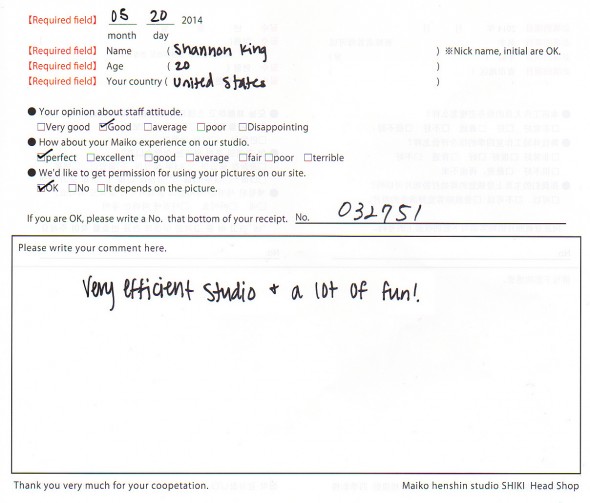 【Required field】 05 20 2014
month day
【Required field】 Name ( Shannon King ) ※Nick name, initial are OK.
【Required field】 Age ( 20 )
【Required field】 Your country ( United States )
● Your opinion about staff attitude.
□Very good ☑Good □average □poor □Disappointing
● How about your Maiko experience on our studio.
☑perfect □excellent □good □average □fair □poor □terrible
● We'd like to get permission for using your pictures on our site.
☑OK □No □It depends on the picture.
If you are OK, please write a No. that bottom of your receipt. No. 032751
Please write your comment here.
Very efficient studio + a lot of fun!
Thank you very much for your coopetation. Maiko henshin studio SHIKI Head Shop